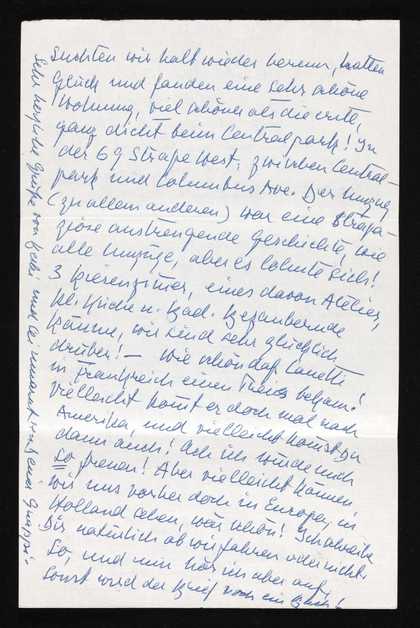 suchten wir halt wieder herum, hatten
Glück und fanden eine sehr schöne
Wohnung, viel schöner als die erste,
ganz dicht beim Centralpark! In
der 69 Strasse West, zwischen Central-
park und Columbus Ave. Der Umzug
(zu allem anderen) war eine strapa-
ziöse anstrengende Geschichte, wie
alle Umzüge, aber es lohnte sich!
3 Riesenzimmer, eines davon Atelier,
kl. Küche u. Bad. Bezaubernde
Räume, wir sind sehr glücklich
drüber! – Wie schön dass Canetti
in Frankreich einen Preis bekam!
Vielleicht kommt er doch mal nach
Amerika, und vielleicht kommst Du
dann auch! Ach ich würde mich
so freuen! Aber vielleicht können
wir uns vorher doch in Europa, in
Holland sehen, wär schön! Ich schreibe
Dir natürlich ob wir fahren oder nicht.
So, und nun hör ich aber auf,
sonst wird der Brief noch ein Buch!
Sehr herzliche Grüsse von und sei umarmt von